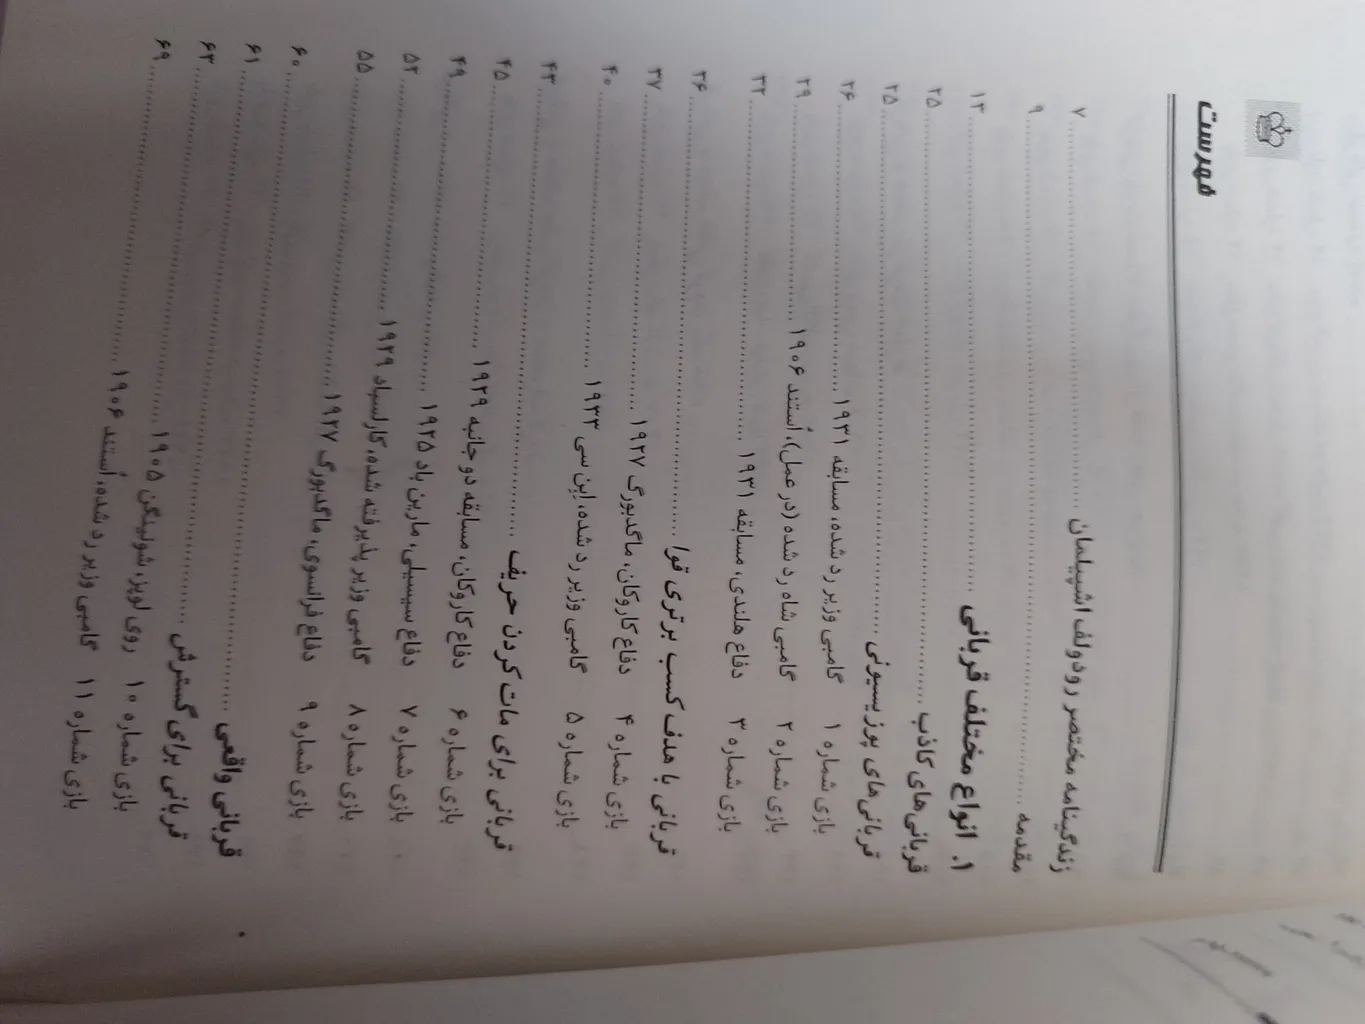 فهرست
زندگینامه مختصر رودولف اشپیلمان ........ ۷
مقدمه ........ ۹
۱. انواع مختلف قربانی ........ ۱۳
قربانی‌های کاذب ........ ۲۵
قربانی‌های پوزیسیونی ........ ۲۵
بازی شماره ۱ گامبی وزیر رد شده، مسابقه ۱۹۳۱ ........ ۲۶
بازی شماره ۲ گامبی شاه رد شده (در عمل)، اُستند ۱۹۰۶ ........ ۲۹
بازی شماره ۳ دفاع هلندی، مسابقه ۱۹۳۱ ........ ۳۲
قربانی با هدف کسب برتری قوا ........ ۳۶
بازی شماره ۴ دفاع کاروکان، ماگدبورگ ۱۹۲۷ ........ ۳۷
بازی شماره ۵ گامبی وزیر رد شده، اِین سی ۱۹۳۳ ........ ۴۰
قربانی برای مات کردن حریف ........ ۴۳
بازی شماره ۶ دفاع کاروکان، مسابقه دو جانبه ۱۹۲۹ ........ ۴۵
بازی شماره ۷ دفاع سیسیلی، مارین باد ۱۹۲۵ ........ ۴۹
بازی شماره ۸ گامبی وزیر پذیرفته شده، کارلسباد ۱۹۲۹ ........ ۵۲
بازی شماره ۹ دفاع فرانسوی، ماگدبورگ ۱۹۲۷ ........ ۵۵
قربانی واقعی ........ ۶۰
قربانی برای گسترش ........ ۶۱
بازی شماره ۱۰ روی لوپز، شولینگن ۱۹۰۵ ........ ۶۳
بازی شماره ۱۱ گامبی وزیر رد شده، اُستند ۱۹۰۶ ........ ۶۹